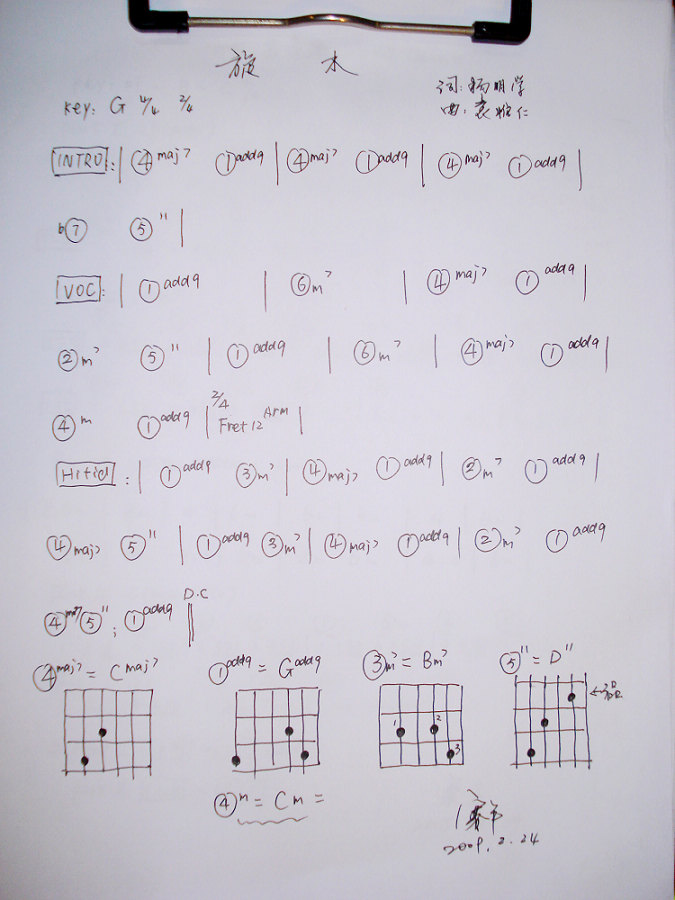 旋 木
词:杨明学
Key: G 4/4 2/4
曲:袁惟仁
INTRO: | ④maj7 ①add9 | ④maj7 ①add9 | ④maj7 ①add9 |
b⑦ ⑤11 |
VOC: | ①add9 | ⑥m7 | ④maj7 ①add9 |
②m7 ⑤11 | ①add9 | ⑥m7 | ④maj7 ①add9 |
④m ①add9 | 2/4 Fret 12 Arm |
: | ①add9 ③m7 | ④maj7 ①add9 | ②m7 ①add9 |
④maj7 ⑤11 | ①add9 ③m7 | ④maj7 ①add9 | ②m7 ①add9
④maj7 ⑤11 ; ①add9 || D.C
④maj7 = Cmaj7 ①add9 = Gadd9 ③m7 = Bm7 ⑤11 = D11
1 2 3
④m = Cm =
2009.2.24